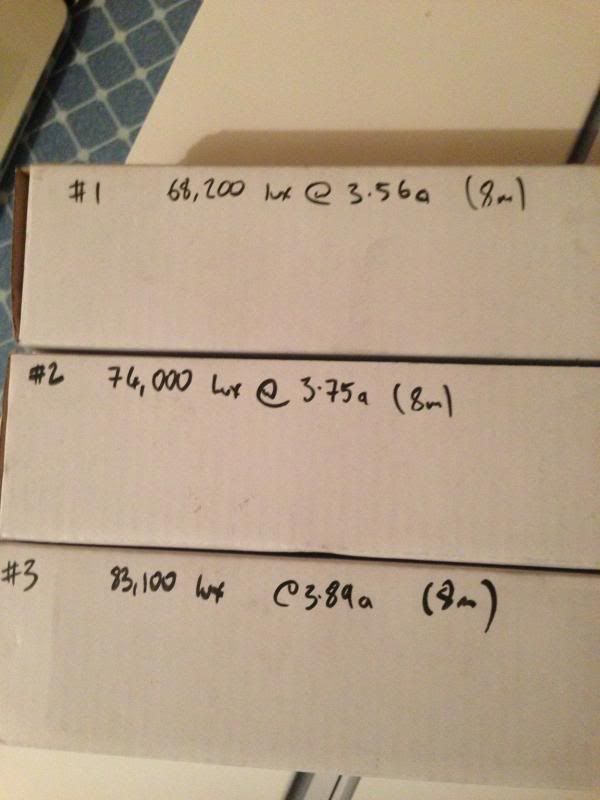 #1 68,200 lux @ 3.56a (8m)
#2 74,000 lux @ 3.75a (8m)
#3 83,100 lux @3.89a (8m)